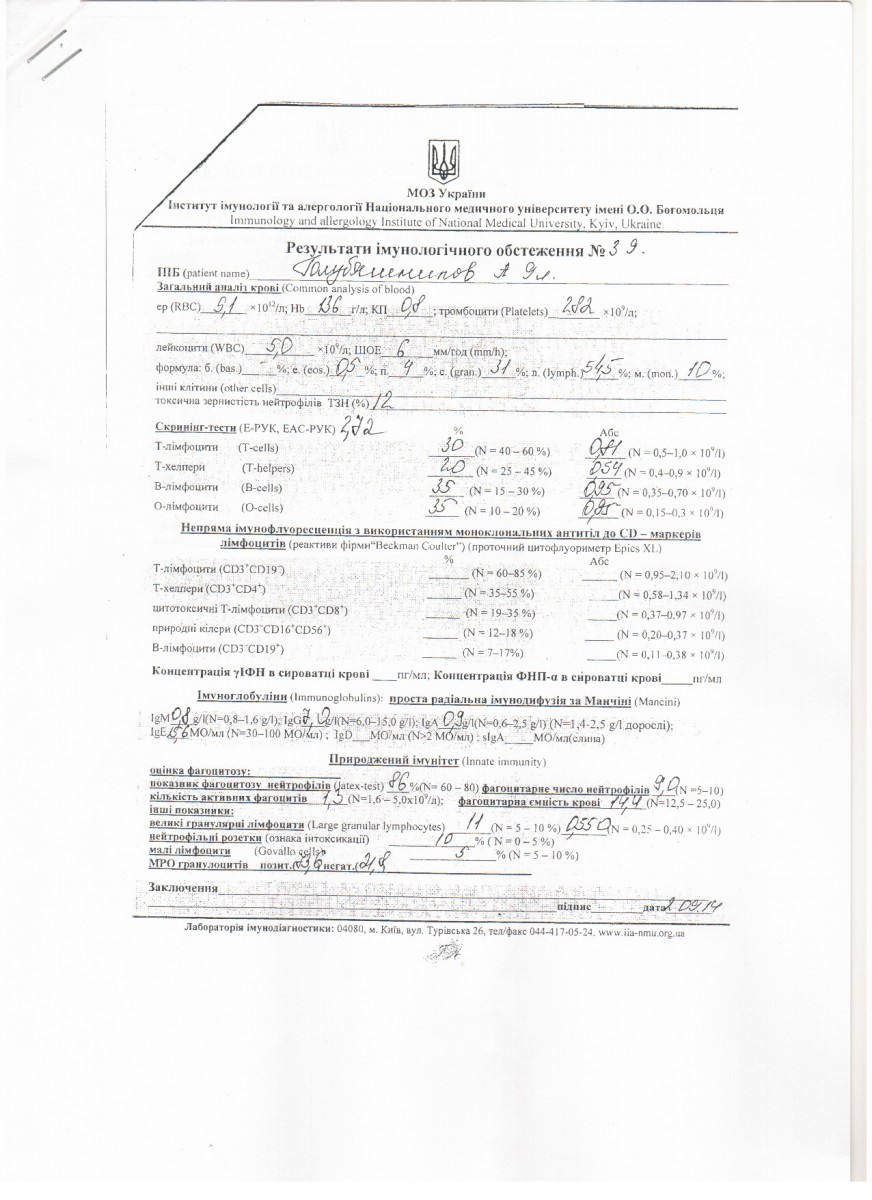 МОЗ України
Інститут імунології та алергології Національного медичного університету імені О.О. Богомольця
Immunology and allergology Institute of National Medical University, Kyiv, Ukraine
Результати імунологічного обстеження № 39.
ПІБ (patient name) А 9л.
Загальний аналіз крові (Common analysis of blood)
ер (RBC) 5,1 ×10¹²/л; Hb 136 г/л; КП 0,8; тромбоцити (Platelets) 282 ×10⁹/л;
лейкоцити (WBC) 5,0 ×10⁹/л; ШОЕ 6 мм/год (mm/h);
формула: б. (bas.) – %; е. (eos.) 0,5 %; п. 4 %; с. (gran.) 31 %; л. (lymph.) 54,5 %; м. (mon.) 10 %;
інші клітини (other cells)
токсична зернистість нейтрофілів ТЗН (%) 12
Скринінг-тести (Е-РУК, ЕАС-РУК) 2,72 % Абс
Т-лімфоцити (T-cells) 30 (N = 40 – 60 %) 0,81 (N = 0,5–1,0 × 10⁹/l)
Т-хелпери (T-helpers) 20 (N = 25 – 45 %) 0,54 (N = 0,4–0,9 × 10⁹/l)
В-лімфоцити (B-cells) 35 (N = 15 – 30 %) 0,95 (N = 0,35–0,70 × 10⁹/l)
О-лімфоцити (O-cells) 35 (N = 10 – 20 %) 0,95 (N = 0,15–0,3 × 10⁹/l)
Непряма імунофлуоресценція з використанням моноклональних антитіл до CD – маркерів
лімфоцитів (реактиви фірми“Beckman Coulter”) (проточний цитофлуориметр Epics XL)
% Абс
Т-лімфоцити (CD3⁺CD19⁻) (N = 60–85 %) (N = 0,95–2,10 × 10⁹/l)
Т-хелпери (CD3⁺CD4⁺) (N = 35–55 %) (N = 0,58–1,34 × 10⁹/l)
цитотоксичні Т-лімфоцити (CD3⁺CD8⁺) (N = 19–35 %) (N = 0,37–0,97 × 10⁹/l)
природні кілери (CD3⁻CD16⁺CD56⁺) (N = 12–18 %) (N = 0,20–0,37 × 10⁹/l)
В-лімфоцити (CD3⁻CD19⁺) (N = 7–17%) (N = 0,11–0,38 × 10⁹/l)
Концентрація γІФН в сироватці крові пг/мл; Концентрація ФНП-α в сироватці крові пг/мл
Імуноглобуліни (Immunoglobulins): проста радіальна імунодифузія за Манчіні (Mancini)
IgM 0,8 g/l(N=0,8–1,6 g/l); IgG 7,0 g/l(N=6,0–15,0 g/l); IgA 0,9 g/l(N=0,6–2,5 g/l) (N=1,4-2,5 g/l дорослі);
IgE 156 МО/мл (N=30–100 МО/мл) ; IgD МО/мл (N>2 МО/мл) ; sIgA МО/мл(слина)
Природжений імунітет (Innate immunity)
оцінка фагоцитозу:
показник фагоцитозу нейтрофілів (latex-test) 86 %(N= 60 – 80) фагоцитарне число нейтрофілів 9,0 (N =5–10)
кількість активних фагоцитів 1,3 (N=1,6 – 5,0х10⁹/л); фагоцитарна ємність крові 14,4 (N=12,5 – 25,0)
інші показники:
великі гранулярні лімфоцити (Large granular lymphocytes) 11 (N = 5 – 10 %) 0,550 (N = 0,25 – 0,40 × 10⁹/l)
нейтрофільні розетки (ознака інтоксикації) 10 % ( N = 0 – 5 %)
малі лімфоцити (Govallo cells) 5 % (N = 5 – 10 %)
МРО гранулоцитів позит.( негат.(
Заключення
підпис дата 2 09.14
Лабораторія імунодіагностики: 04080, м. Київ, вул. Турівська 26, тел/факс 044-417-05-24. www.iia-nmu.org.ua